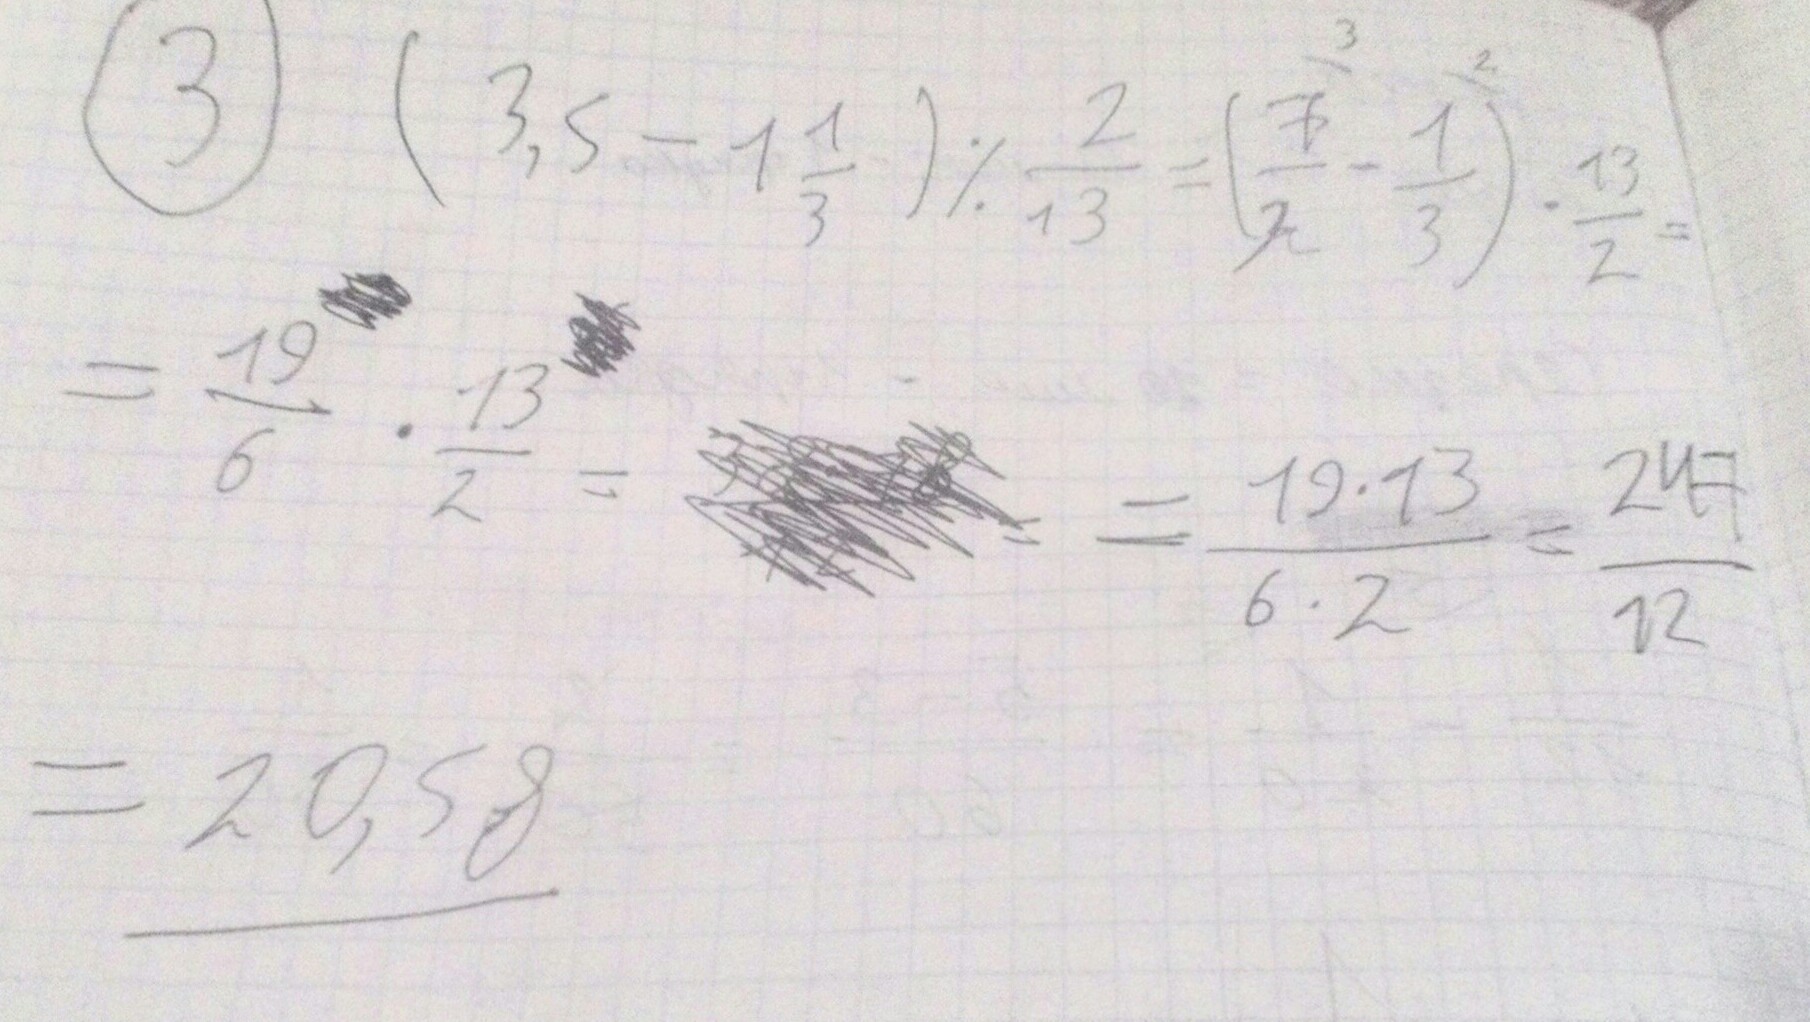 ③ (3,5 - 1 1/3) ٪ 2/13 = (7/2 ³ - 1/3 ²) · 13/2 =
= 19/6 · 13/2 = = = 19·13/6·2 = 247/12
= 20,58